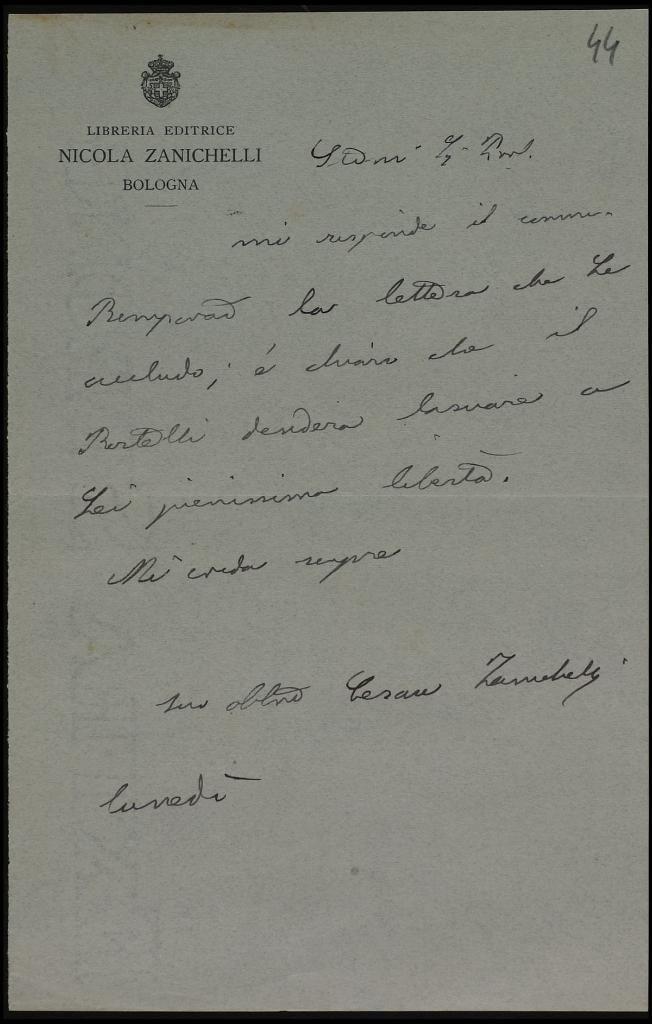 44
LIBRERIA EDITRICE
NICOLA ZANICHELLI
BOLOGNA
Stim. Sig. Prof.
mi risponde il comm.
Bemporad la lettera che Le
accludo; è chiaro che il
Bortelli desidera lasciare a
Lei pienissima libertà.
Mi creda sempre
suo obbmo Cesare Zanichelli
lunedì